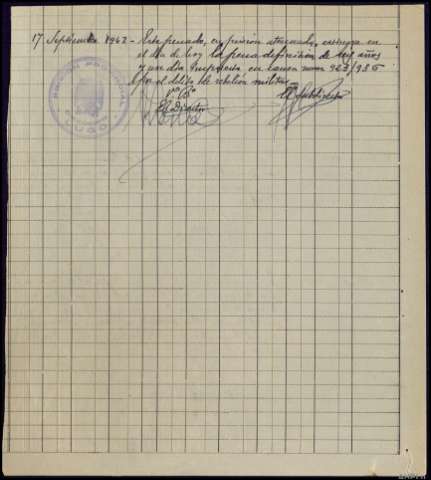 17 Septiembre 1942 - Este penado, en prisión atenuada, extingue en
el día de hoy la pena definitiva de seis años
y un día impuesta en causa num 923/936
por el delito de rebelión militar
Vº Bº
El Director
El Subdirector
PRISIÓN PROVINCIAL
LUGO